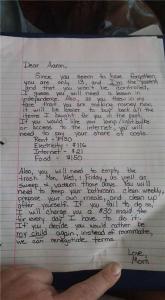 Dear Aaron,
Since you seem to have forgotten
you are only 13, and I'm the parent
and that you won't be controlled,
I guess you will need a lesson in
independence. Also, as you threw in my
face that you are making money now,
it will be easier to buy back all the
items I bought for you in the past.
If you would like your lamp/lightbulbs
or access to the internet, you will
need to pay your share of costs:
Rent - $430
Electricity - $116
Internet - $21
Food - $150
Also, you will need to empty the
trash Mon, Wed, & Friday, as well as
sweep & vacuum those days. You will
need to keep your bathroom clean weekly,
prepare your own meals, and clean up
after yourself. If you fail to do so,
I will charge you a $30 maid fee
for every day I have to do it.
If you decide you would rather be
my child again, instead of roommate,
we can renegotiate terms.
Love,
Mom